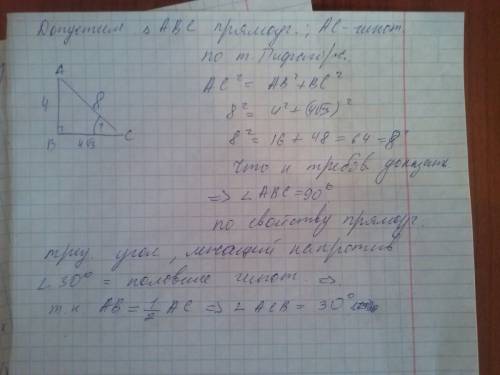 Допустим △ ABC прямоуг.; AC - гипот.
по т. Пифагора.
AC² = AB² + BC²
8² = 4² + (4√3)²
8² = 16 + 48 = 64 = 8²
Что и требов. доказать
⇒ ∠ABC = 90°
по свойству прямоуг.
треу. угол, лежащий напротив
∠30° = половине гипот. ⇒
т.к AB = 1/2 AC ⇒ ∠ACB = 30°
A
4
8
B
4√3
?
C